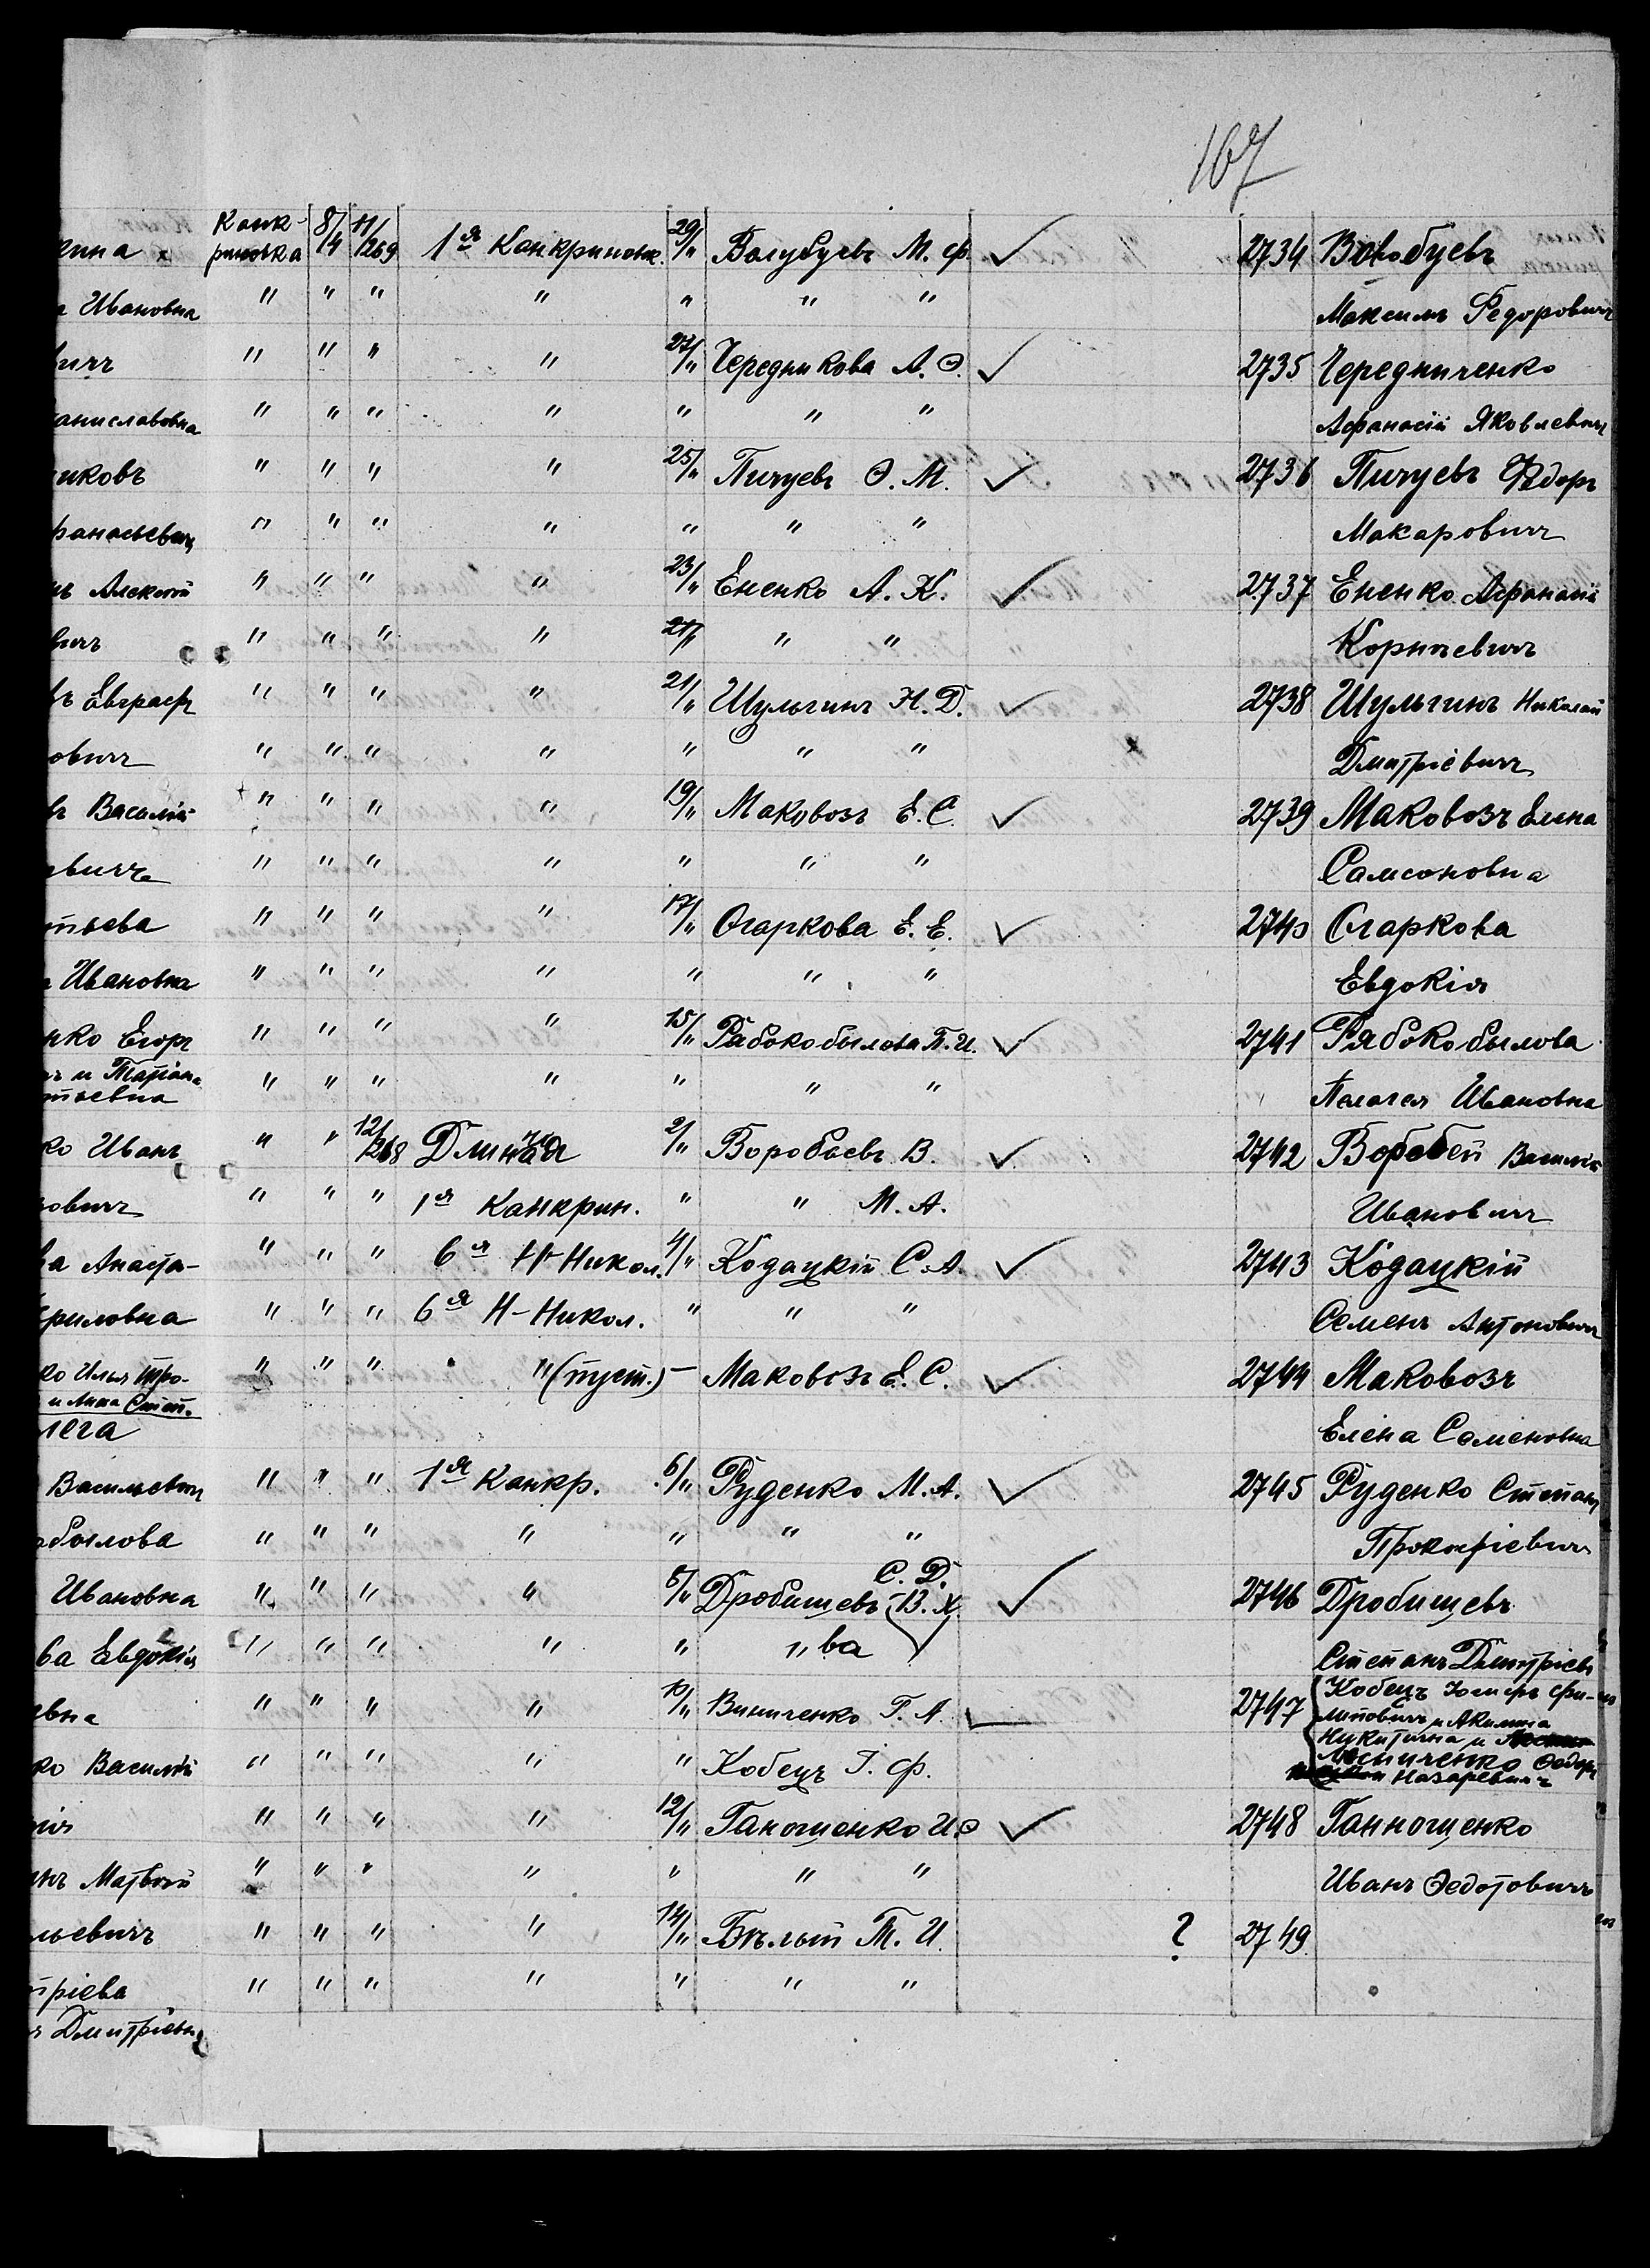 167
кина Канк- 8/14 11/1269 1я Канкриновк. 29/" Волубуевъ М. Ф. ✓ 2734 Вовобуевъ
ринова
Ивановна " " " " " " " Максимъ Федоровичъ
вичъ " " " " 27/" Чередникова А. Ѳ. ✓ 2735 Чередниченко
аниславовна " " " " " " " Афанасій Яковлевичъ
иковъ " " " " 25/" Пичуевъ Ѳ. М. ✓ 2736 Пичуевъ Федоръ
фанасьевичъ " " " " " " " Макаровичъ
нъ Алексѣй " " " " 23/" Ененко А. К. ✓ 2737 Ененко Афанасій
вичъ " " " " 21/" " " Корнѣевичъ
въ Евграфъ " " " " 21/" Шульгинъ Н. Д. ✓ 2738 Шульгинъ Николай
овичъ " " " " " " " Дмитріевичъ
въ Василій " " " " 19/" Маковозъ Е. С. ✓ 2739 Маковозъ Елена
евичъ " " " " " " " Самсоновна
тьева " " " " 17/" Огаркова Е. Е. ✓ 2740 Огаркова
Ивановна " " " " " " " Евдокія
нко Егоръ " " " " 15/" Рабокобылова П. И. ✓ 2741 Рябокобылова
чъ и Татіана " " " " " " " Пелагея Ивановна
тьевна
ко Иванъ " " 12/1268 Длинная 2/" Воробьевъ В. ✓ 2742 Воробей Василій
овичъ " " " 1я Канкрин. " " М. А. Ивановичъ
ва Анаста- " " " 6я Н-Никол. 4/" Кодацкій С. А. ✓ 2743 Кодацкій
риловна " " " 6я Н-Никол. " " " Семенъ Антоновичъ
ко Илья Тро- " " " " (пуст.) – Маковозъ Е. С. ✓ 2744 Маковозъ
и Анна Степ.
лега Елена Семеновна
Васильевичъ " " " 1я Канкр. 6/" Руденко М. А. ✓ 2745 Руденко Степанъ
обылова " " " " " " " Прокофіевичъ
С. Д.
Ивановна " " " " 8/" Дробищевъ (В. Х. ✓ 2746 Дробищевъ
ва Евдокія " " " " " " ва Степанъ Дмитріев
евна " " " " 10/" Виниченко Г. А. 2747 Кобецъ Фи-
липовичъ и Акилина
Никитична и
ко Василій " " " " " Кобецъ І. Ф. Ѳедоръ
Назаревичъ
рія " " " " 12/" Ганощенко И. Ѳ ✓ 2748 Ганнощенко
инъ Матвѣй " " " " " " " Иванъ Ѳедотовичъ
льевичъ " " " " 14/" Бѣлый Т. И. ? 2749
тріева " " " " " " "
Дмитріевн